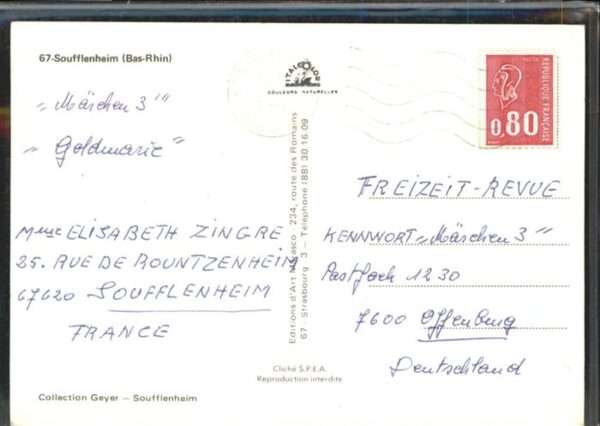 67-Soufflenheim (Bas-Rhin)
"Märchen 3"
"Goldmarie"
Mme ELISABETH ZINGRE
25. RUE DE ROUNTZENHEIM
67620 SOUFFLENHEIM
FRANCE
Collection Geyer — Soufflenheim
ITALCOLOR
COULEURS NATURELLES
Editions d'Art 234, route des Romains
67 Strasbourg 3 — Téléphone (88) 30 16 09
Cliché S.P.E.A.
Reproduction interdite
REPUBLIQUE FRANCAISE
0,80
FREIZEIT-REVUE
KENNWORT "Märchen 3"
Postfach 1230
7600 Offenburg
Deutschland